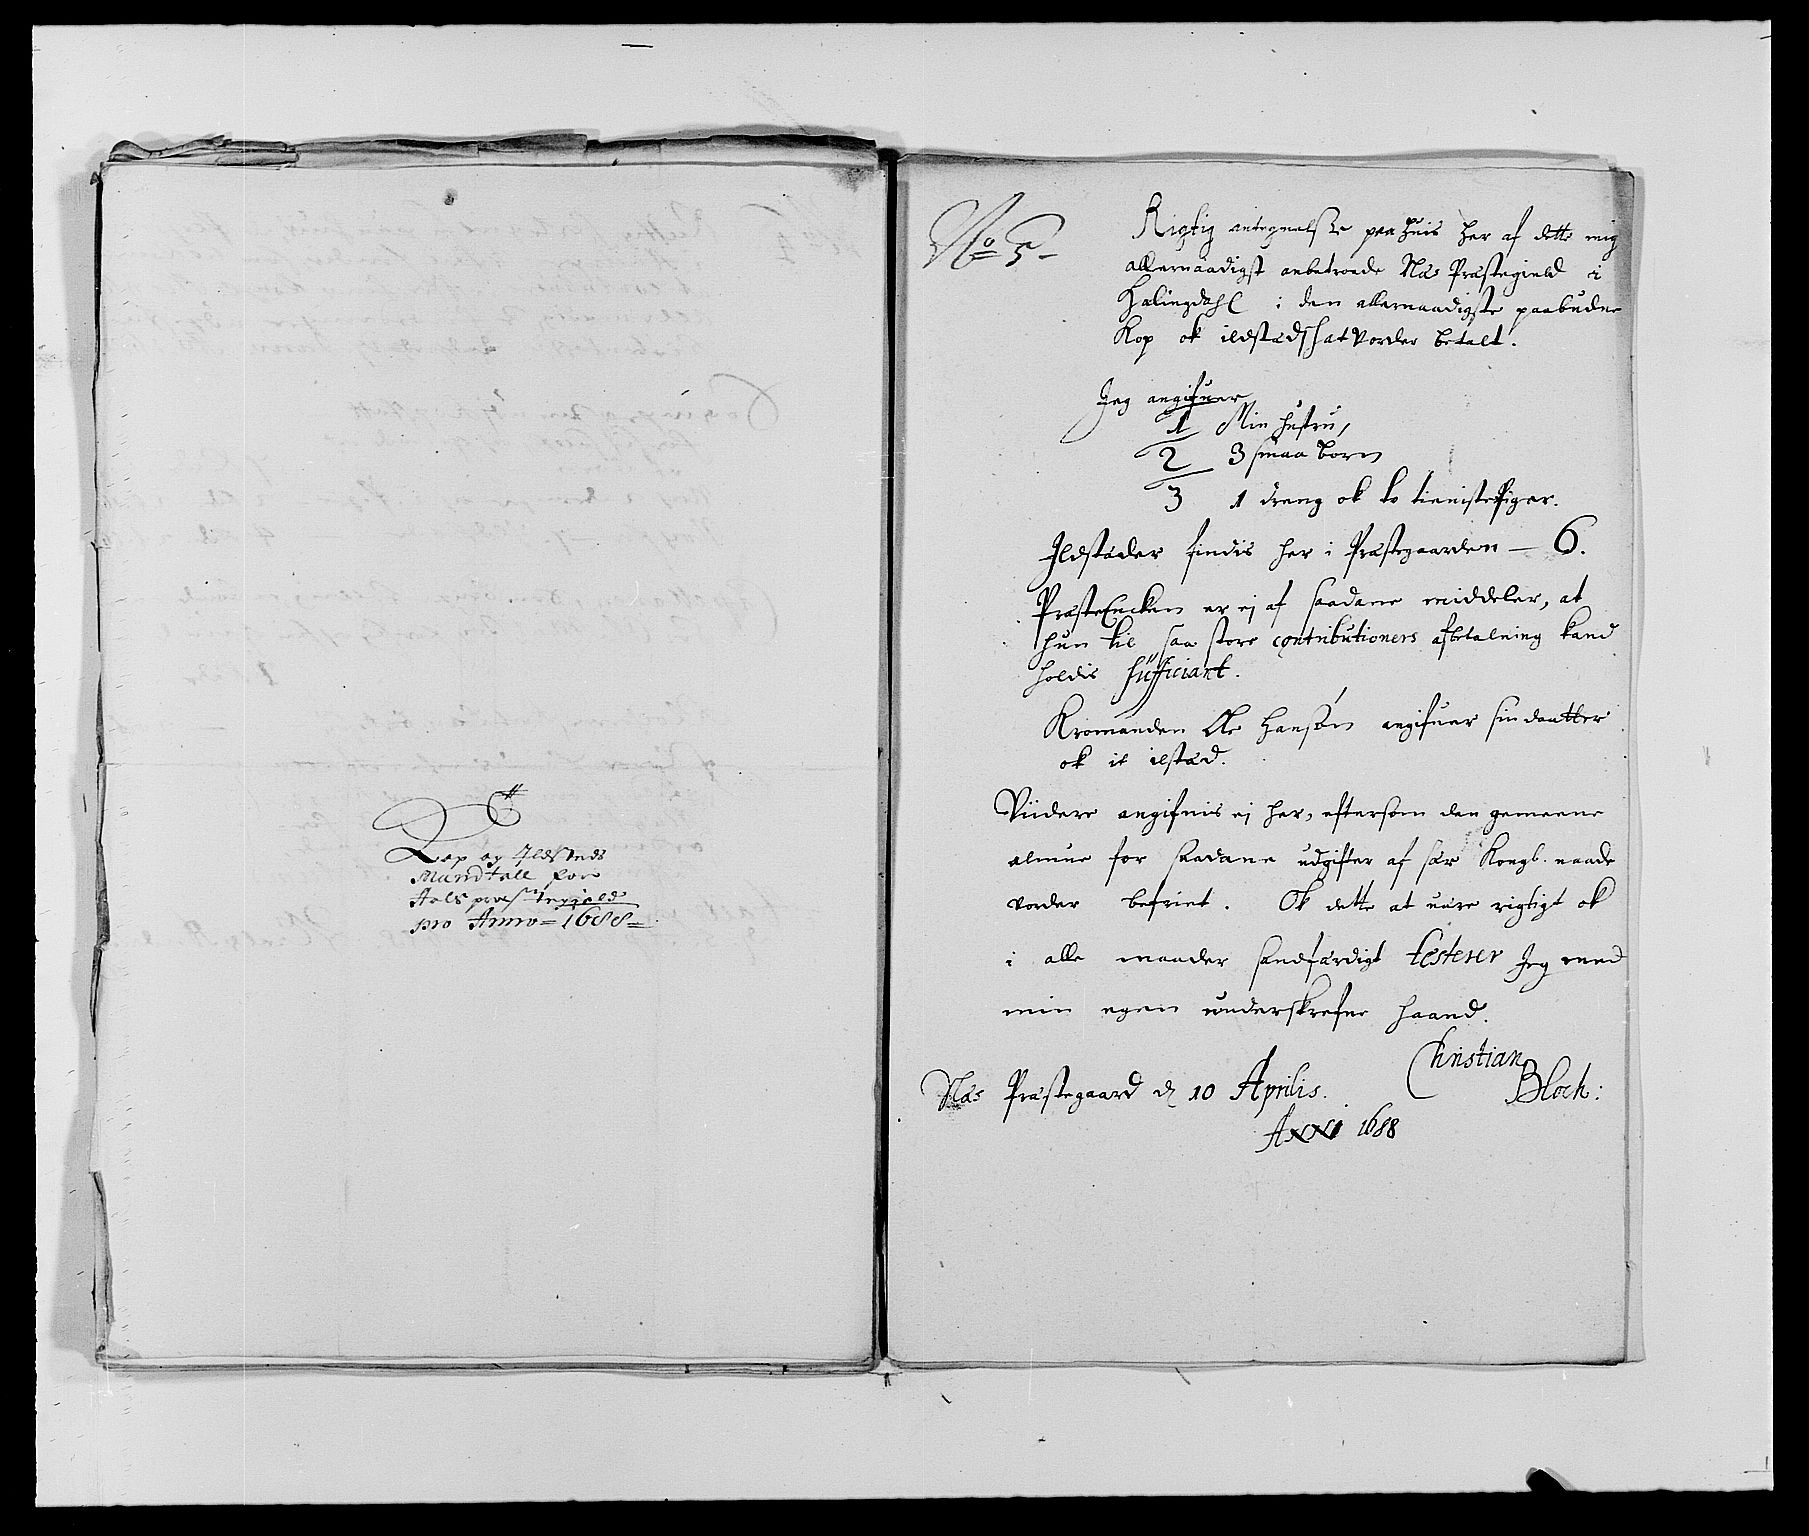 C
Kop og Ildsteds
Mandtall for
Aals præstegield
pro Anno = 1688 =
No 5 -
Rigtig antegnelsse paa huis her af dette mig
allernaadigst anbetroede Næs Præstegield i
Halingdahl i den allernaadigste paabudne
Kop ok ildstædsshat vorder betalt.
Jeg angifuer
1 Min hustru,
2 3 smaa born
3 1 dreng ok to tienistePiger.
Ildstæder findis her i Præstegaarden — 6.
PræsteEncken er ej af saadane middeler, at
hun til saa store contributioners afbetalning kand
holdis sufficiant.
Kromanden Ole Hansøn angifuer sin daatter
ok it ilstæd.
Viidere angifuis ej her, eftersom den gemeene
almue for saadane udgifter af sær Kongl. naade
vorder befriet. Ok dette at uære rigtigt ok
i alle maader sandfærdigt testerer Jeg med
min egen underskrefne haand.
Christian
Bloch:
Næs Præstegaard d 10 Aprilis.
Anni 1688